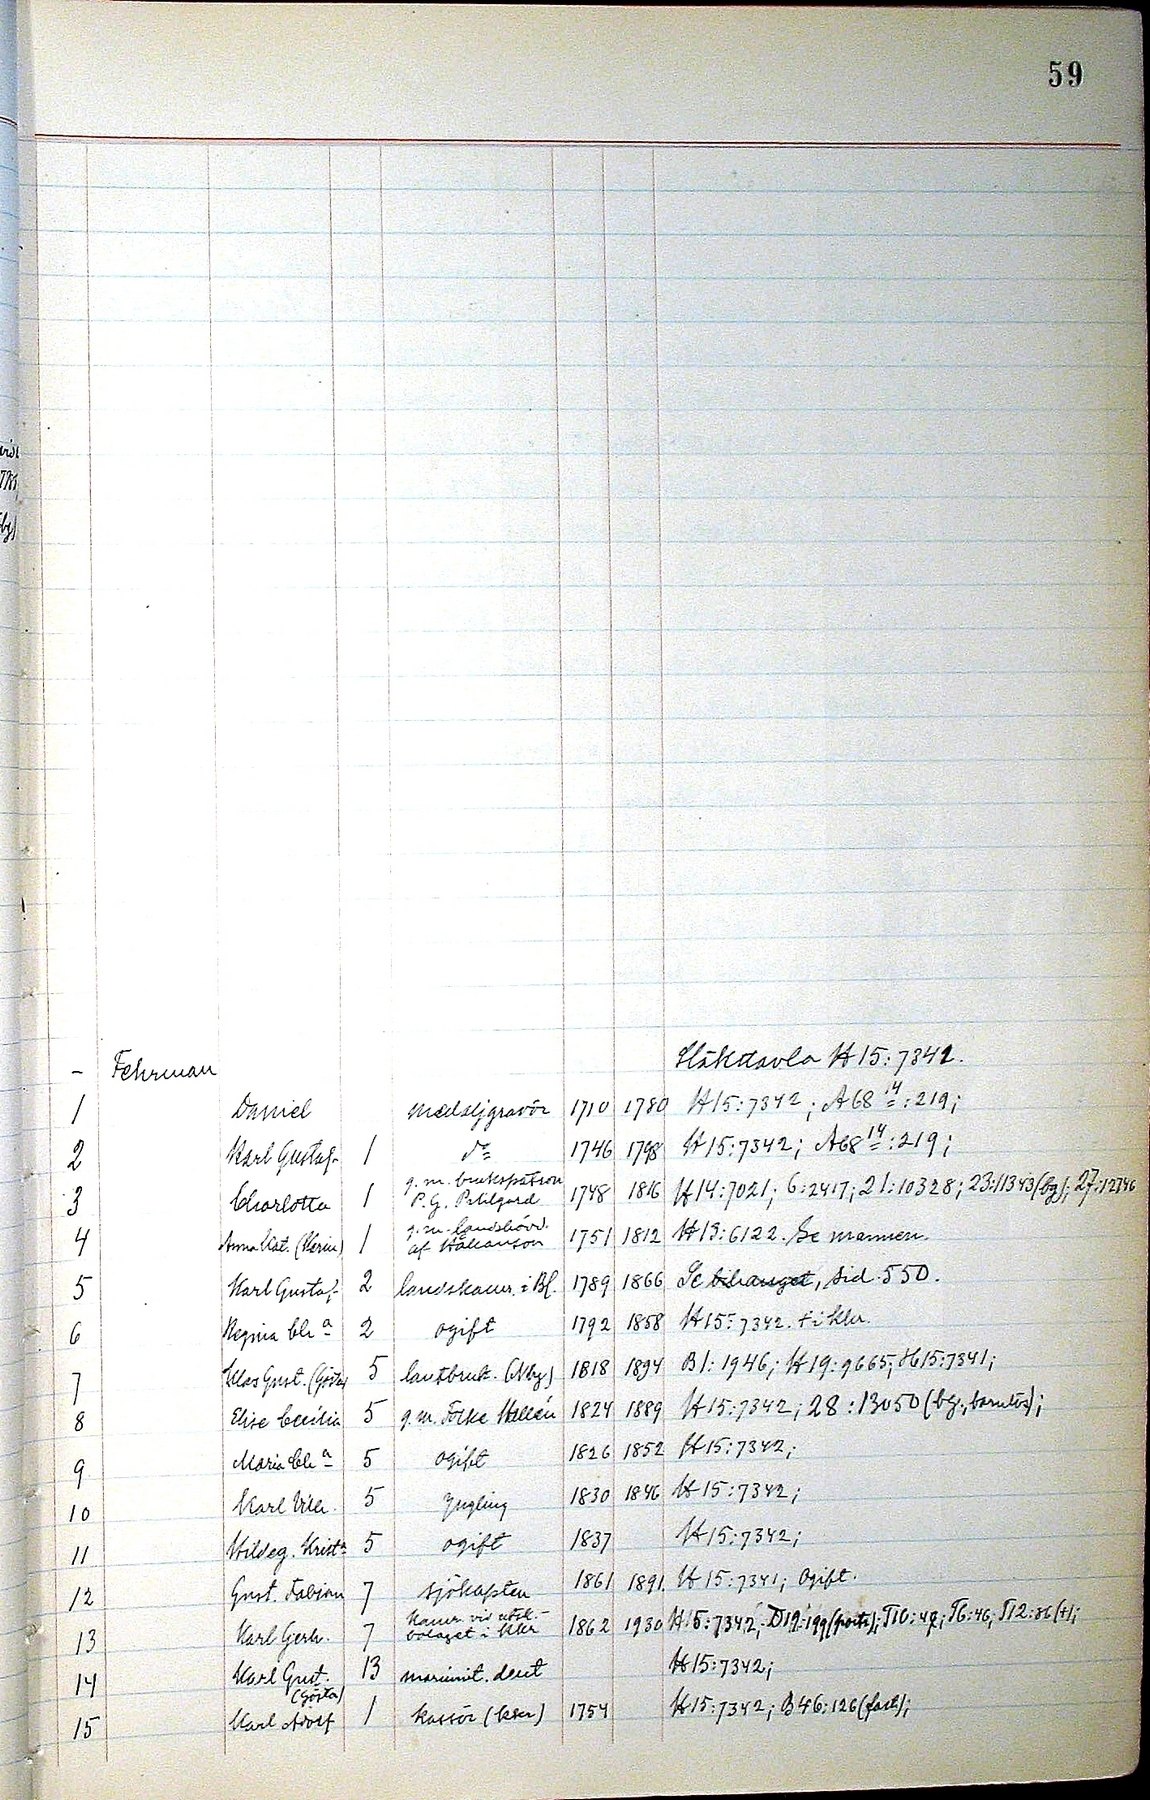 59
- Fehrman Släkttavla H 15:7342.
1 Daniel medaljgravör 1710 1780 H 15:7342; A 68 14:219;
2 Karl Gustaf 1 do 1746 1798 H 15:7342; A 68 14:219;
3 Charlotta 1 g. m. brukspatron P. G. 1748 1816 H 14:7021; 6:2417; 21:10328; 23:11343 (bg); 27:12346
4 Anna Kat. 1 g. m. landshövd. af Håkanson 1751 1812 H 13:6122. Se mannen.
5 Karl Gustaf 2 landskam. i Bl. 1789 1866 Se bihanget, sid. 550.
6 Regina Cha 2 ogift 1792 1858 H 15:7342. † i Khr.
7 Klas Gust. (Gösta) 5 lantbruk. 1818 1894 B 1:1946; H 19:9665; H 15:7341;
8 Elise Cecilia 5 g. m. Folke 1824 1889 H 15:7342; 28:13050 (bg., barnlös);
9 Maria Cha 5 ogift 1826 1852 H 15:7342;
10 Karl Vilh. 5 yngling 1830 1846 H 15:7342;
11 Hildeg. Krista 5 ogift 1837 H 15:7342;
12 Gust. Fabian 7 sjökapten 1861 1891. H 15:7341; Ogift.
13 Karl Gerh. 7 kamr. vid utsk.-bolaget i Khr 1862 1930 H 15:7342; T 6:46; T 12:36 (†);
14 Karl Gust. (Gösta) 13 marinint. dent H 15:7342;
15 Karl Adolf 1 kassör 1754 H 15:7342; B 46:126